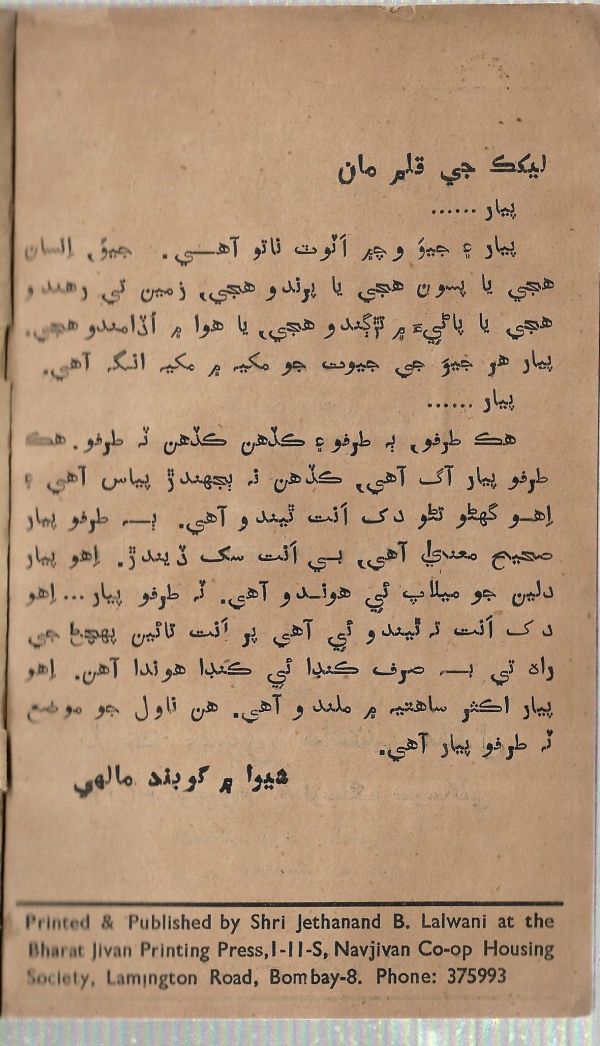 ليکڪ جي قلم مان
پيار ......
پيار ۽ جيوَ وچ ۾ اَٽوٽ ناتو آهي. جيوَ، اِنسان
هجي يا پسون هجي يا پرندو هجي، زمين تي رهندو
هجي يا پاڻيءَ ۾ ترڳندو هجي، يا هوا ۾ اُڏامندو هجي.
پيار هر جيوَ جي جيوت جو مکيه ۾ مکيه انگ آهي.
پيار ......
هڪ طرفو، ٻه طرفو ۽ ڪڏهن ڪڏهن ٽہ طرفو. هڪ
طرفو پيار آگ آهي، ڪڏهن نہ ٻجهندڙ پياس آهي ۽
اِهو گهڻو تڻو دک اَنت ٿيندو آهي. ٻہ طرفو پيار
صحيح معنيٰ آهي، بي اَنت سک ڏيندڙ. اِهو پيار
دلين جو ميلاپ ئي هوندو آهي. ٽہ طرفو پيار... اِهو
دک اَنت نہ ٿيندو ئي آهي پر اَنت تائين پهچڻ جي
راهہ تي بہ صرف ڪنڊا ئي ڪنڊا هوندا آهن. اِهو
پيار اڪثر ساهتيہ ۾ ملندو آهي. هن ناول جو موضع
ٽہ طرفو پيار آهي.
شيوا ۾ گوبند مالهي
Printed & Published by Shri Jethanand B. Lalwani at the
Bharat Jivan Printing Press,1-11-S, Navjivan Co-op Housing
Society, Lamington Road, Bombay-8. Phone: 375993